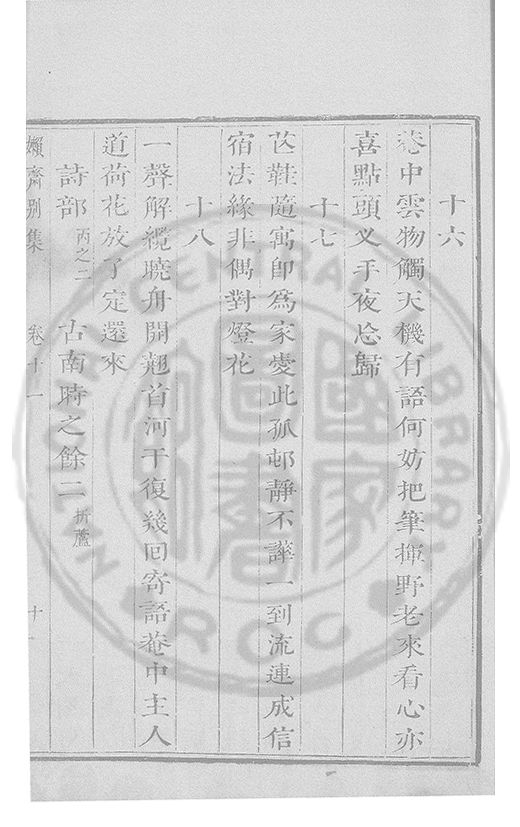 十六
菴中雲物觸天機有語何妨把筆揮野老來看心亦
喜點頭叉手夜忘歸
十七
芒鞋隨寓即為家愛此孤邨靜不譁一到流連成信
宿法緣非偶對燈花
十八
一聲解纜曉舟開翹首河干復幾回寄語菴中主人
道荷花放了定還來
詩部 丙之二 古南時之餘二 折蘆
嬾齋別集 卷十一 十一